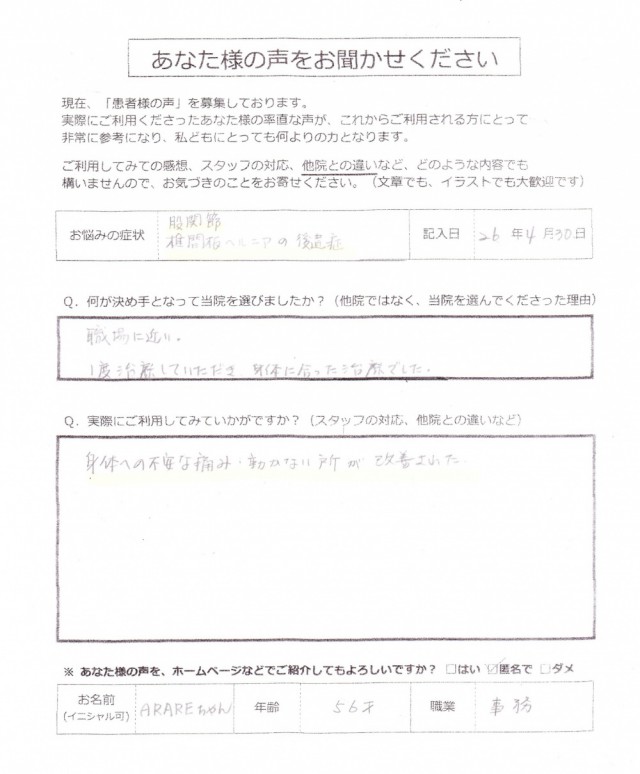 あなた様の声をお聞かせください
現在、「患者様の声」を募集しております。
実際にご利用くださったあなた様の率直な声が、これからご利用される方にとって
非常に参考になり、私どもにとっても何よりの力となります。
ご利用してみての感想、スタッフの対応、他院との違いなど、どのような内容でも
構いませんので、お気づきのことをお寄せください。（文章でも、イラストでも大歓迎です）
お悩みの症状
股関節
椎間板ヘルニアの後遺症
記入日 26 年 4 月 30 日
Q．何が決め手となって当院を選びましたか？（他院ではなく、当院を選んでくださった理由）
職場に近い。
1度治療していただき、身体に合った治療でした。
Q．実際にご利用してみていかがですか？（スタッフの対応、他院との違いなど）
身体への不安な痛み・動かない所が改善された
※ あなた様の声を、ホームページなどでご紹介してもよろしいですか？ □はい ☑匿名で □ダメ
お名前
(イニシャル可) ARAREちゃん 年齢 56才 職業 事務